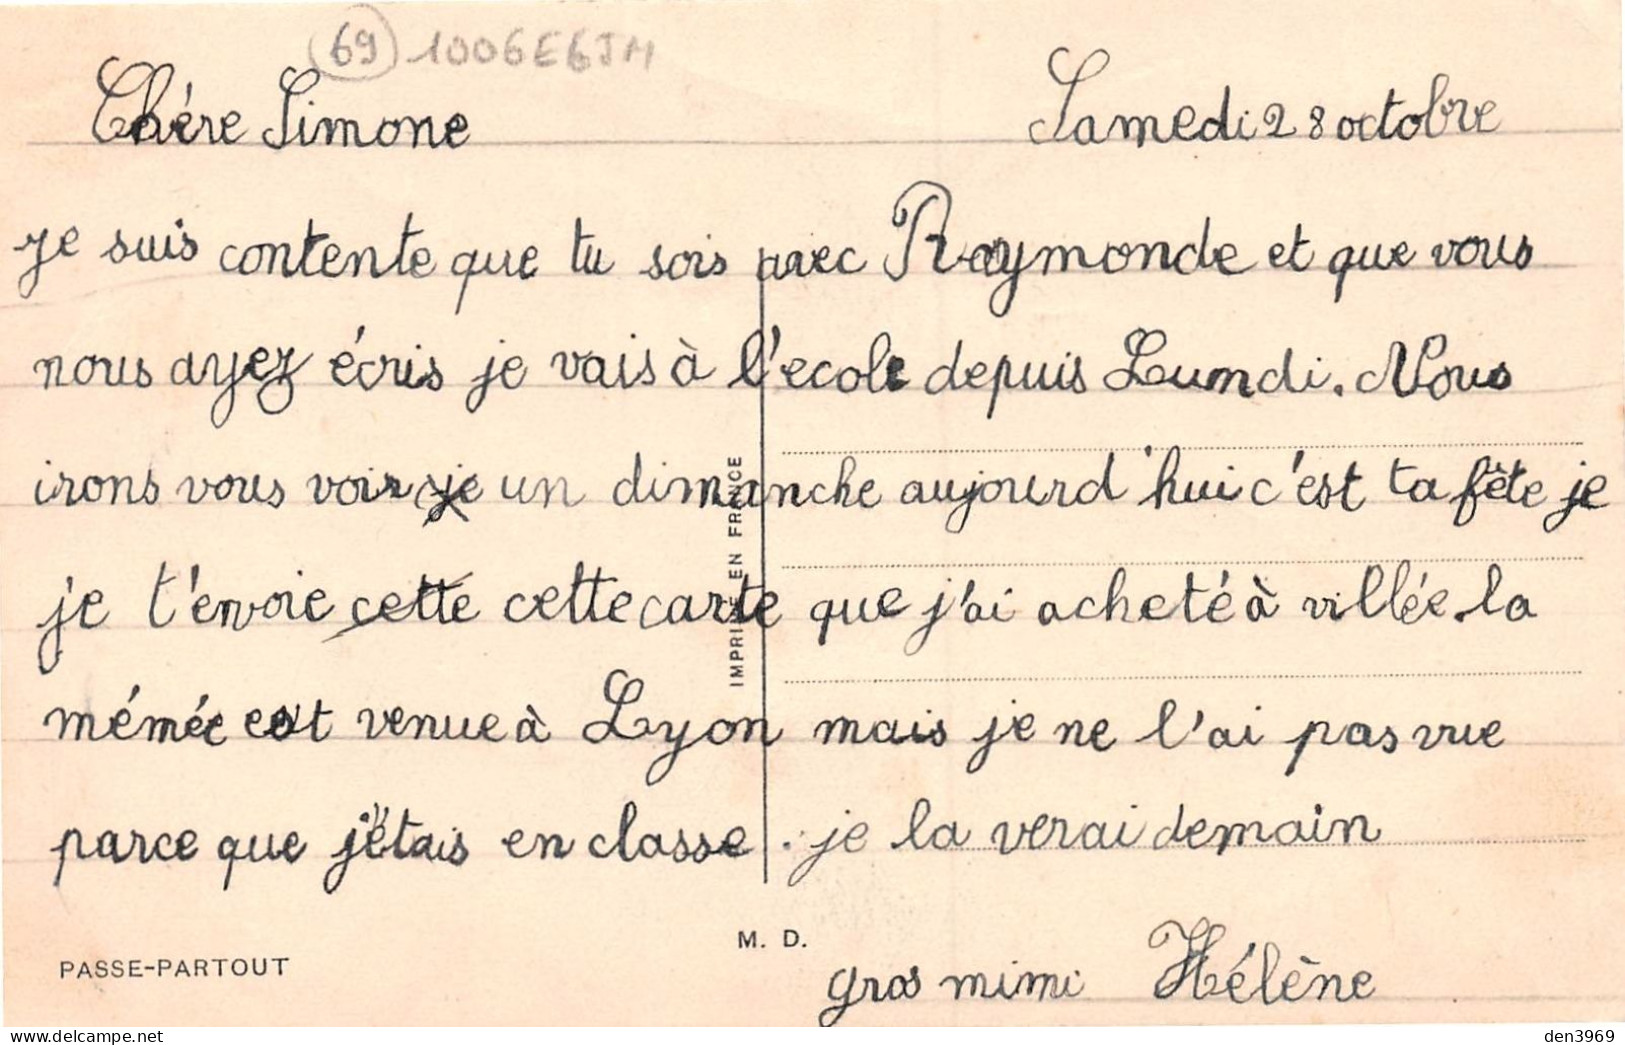 69 1006E6JM
Chère Simone Samedi 28 octobre
je suis contente que tu sois avec Raymonde et que vous
nous ayez écris je vais à l'ecole depuis Lundi. Nous
irons vous voir je un dimanche aujourd'hui c'est ta fête je
je t'envoie cette cette carte que j'ai acheté à villée. la
mémée est venue à Lyon mais je ne l'ai pas vue
parce que j'étais en classe. je la verai demain
gros mimi Hélène
IMPRIMÉ EN FRANCE
M. D.
PASSE-PARTOUT
den3969